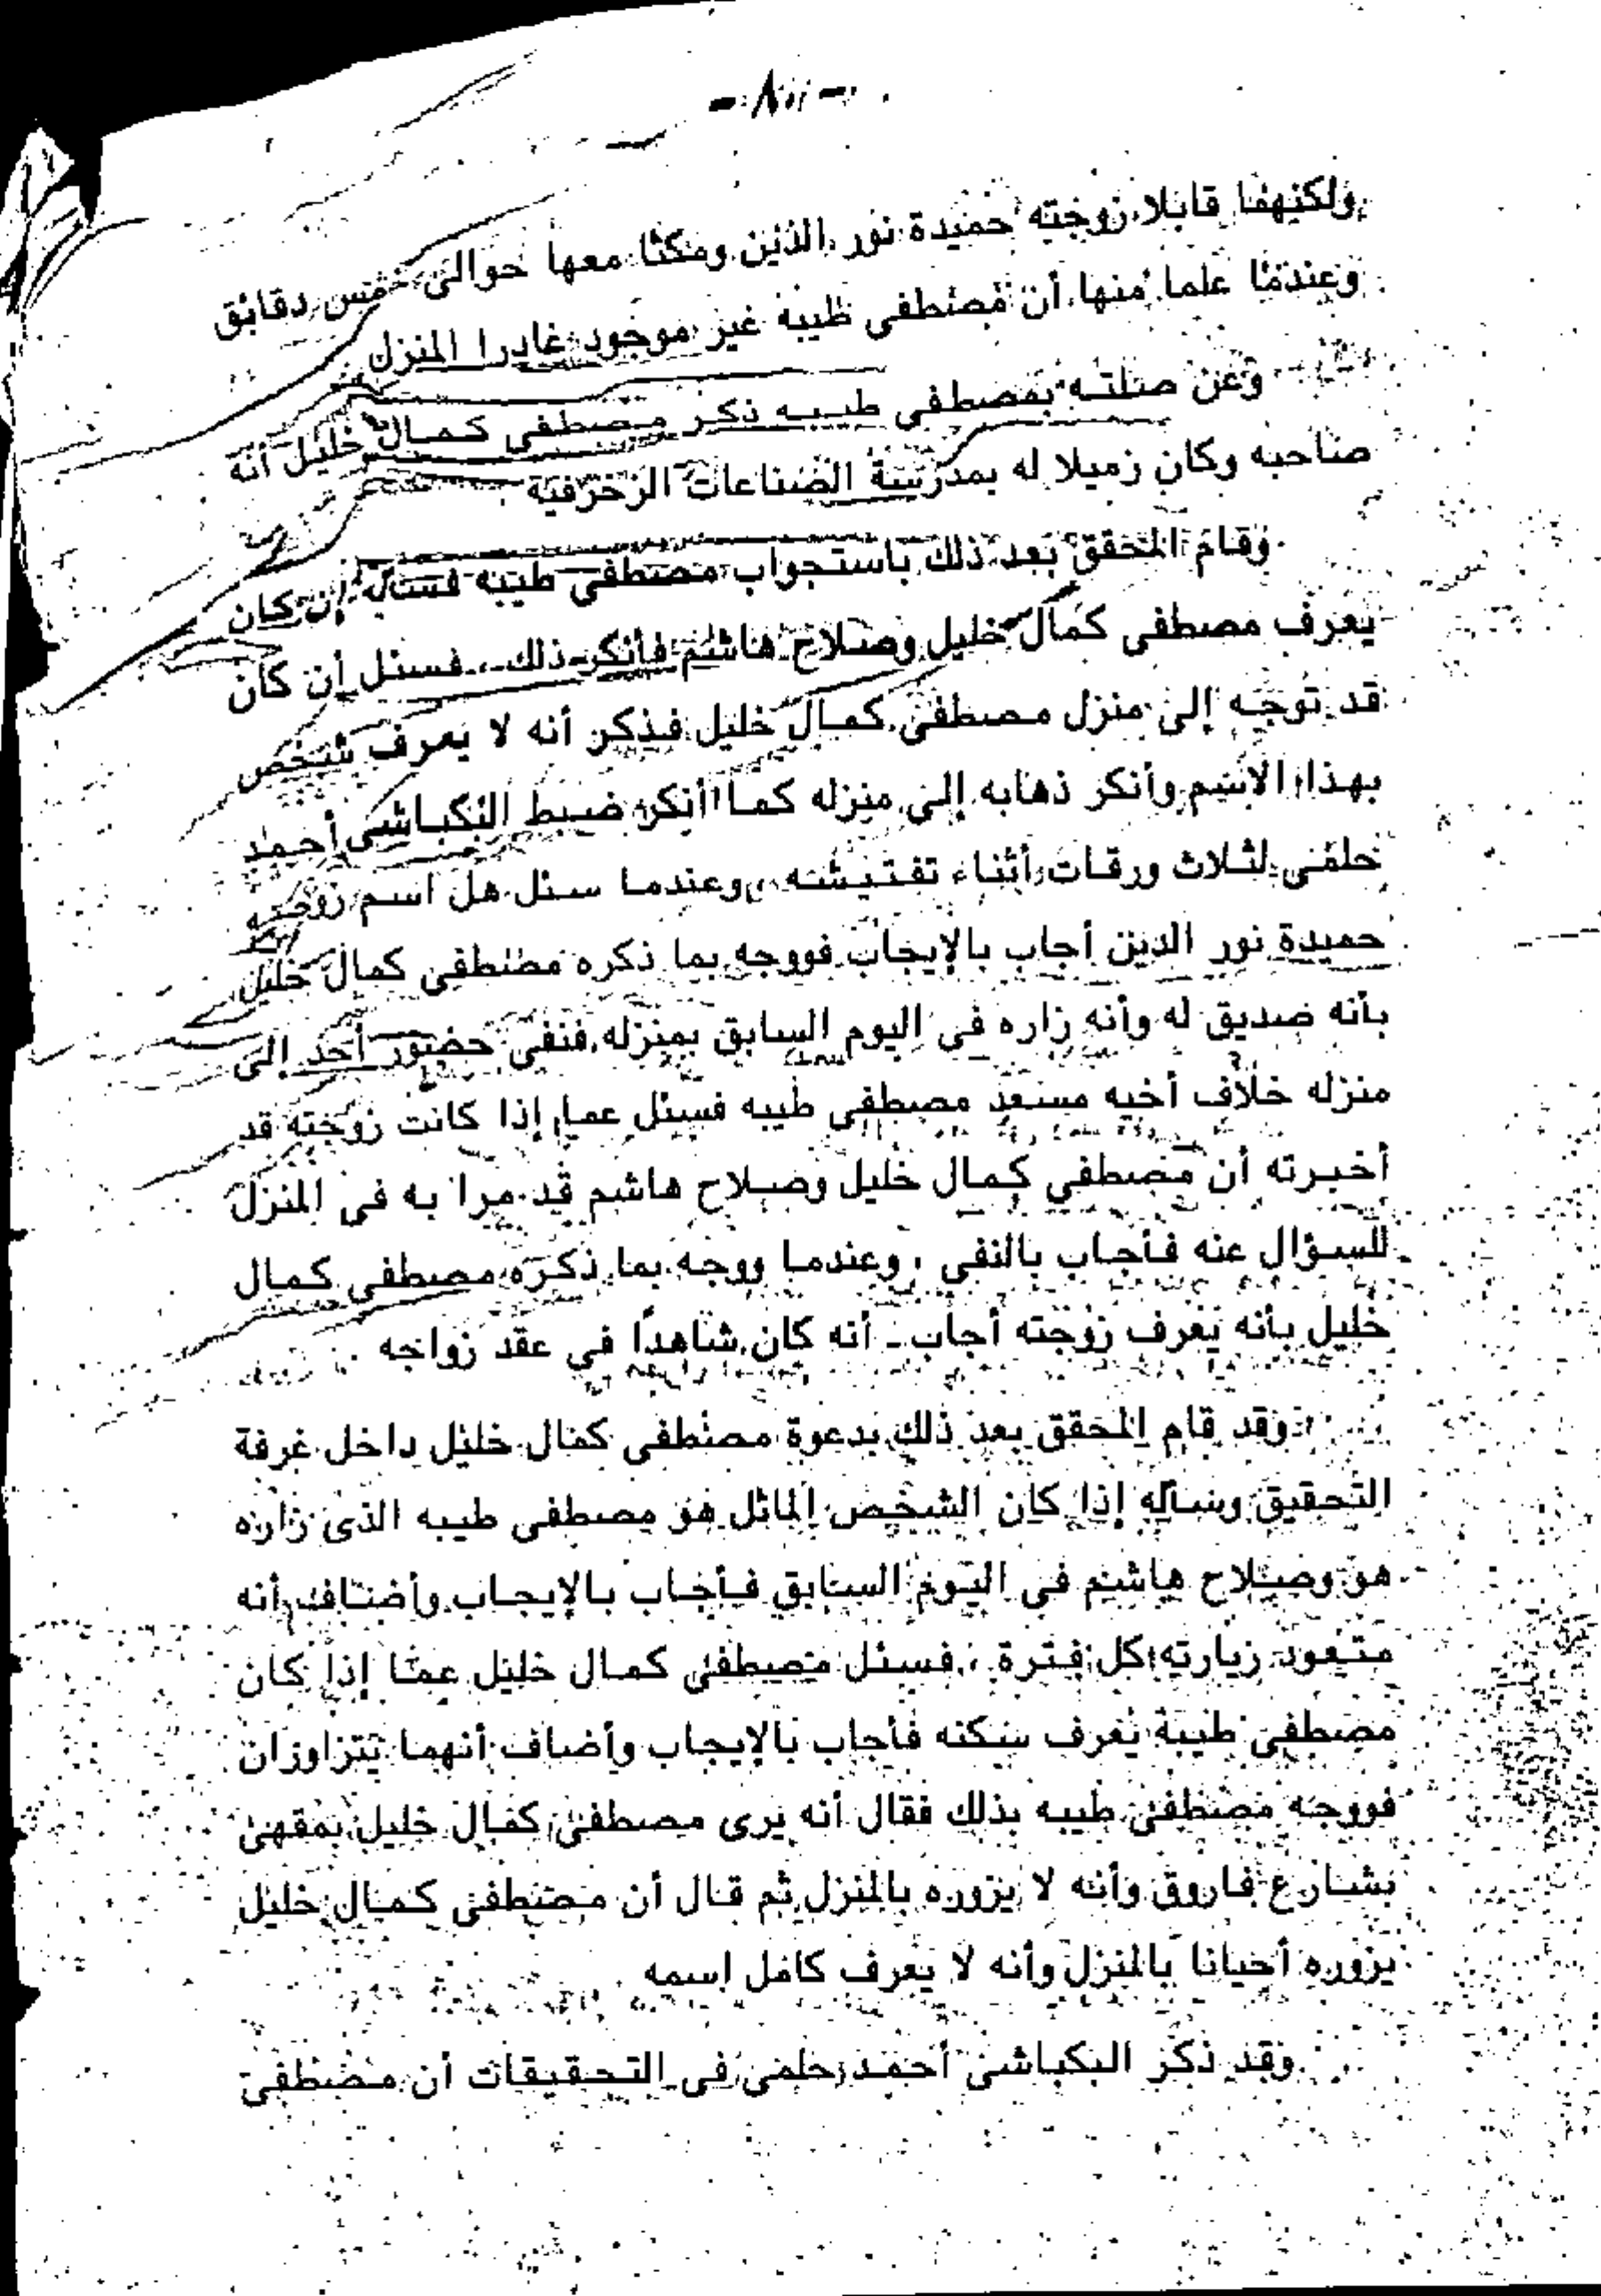 ولكنهما قابلا زوجته حميدة نور الدين ومكثا معها حوالى خمس دقائق
وعندما علما منها أن مصطفى طيبه غير موجود غادرا المنزل
وعن صلته بمصطفى طيبه ذكر مصطفى كمال خليل أنه
صاحبه وكان زميلا له بمدرسة الصناعات الزخرفية
وقام المحقق بعد ذلك باستجواب مصطفى طيبه فسأله إن كان
يعرف مصطفى كمال خليل وصلاح هاشم فأنكر ذلك ، فسئل إن كان
قد توجه إلى منزل مصطفى كمال خليل فذكر أنه لا يعرف شخص
بهذا الاسم وأنكر ذهابه إلى منزله كما أنكر ضبط البكباشى أحمد
حلمى لثلاث ورقات أثناء تفتيشه ، وعندما سئل هل اسم زوجته
حميدة نور الدين أجاب بالإيجاب فووجه بما ذكره مصطفى كمال خليل
بأنه صديق له وأنه زاره فى اليوم السابق بمنزله فنفى حضور أحد إلى
منزله خلاف أخيه مسعد مصطفى طيبه فسئل عما إذا كانت زوجته قد
أخبرته أن مصطفى كمال خليل وصلاح هاشم قد مرا به فى المنزل
للسؤال عنه فأجاب بالنفى ، وعندما ووجه بما ذكره مصطفى كمال
خليل بأنه يعرف زوجته أجاب - أنه كان شاهدًا فى عقد زواجه
وقد قام المحقق بعد ذلك بدعوة مصطفى كمال خليل داخل غرفة
التحقيق وسأله إذا كان الشخص الماثل هو مصطفى طيبه الذى زاره
هو وصلاح هاشم فى اليوم السابق فأجاب بالإيجاب وأضاف أنه
متعود زيارته كل فترة ، فسئل مصطفى كمال خليل عما إذا كان
مصطفى طيبة يعرف سكنه فأجاب بالإيجاب وأضاف أنهما يتزاوران
فووجه مصطفى طيبه بذلك فقال أنه يرى مصطفى كمال خليل بمقهى
بشارع فاروق وأنه لا يزوره بالمنزل ثم قال أن مصطفى كمال خليل
يزوره أحيانا بالمنزل وأنه لا يعرف كامل اسمه
وقد ذكر البكباشى أحمد حلمى فى التحقيقات أن مصطفى